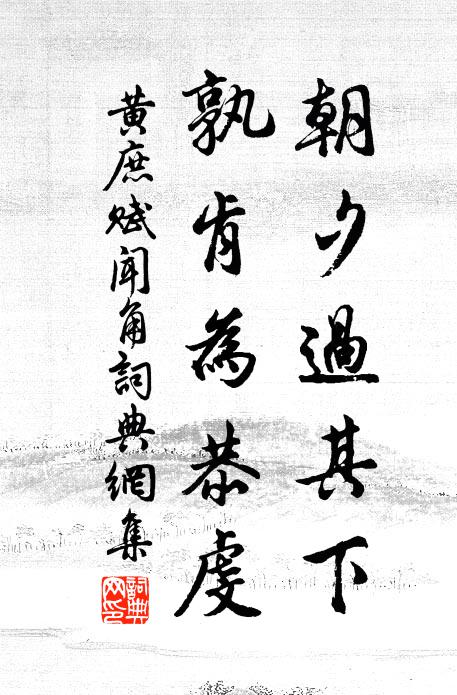 朝夕過其下
孰肯為恭虔
黃庶賦聞角詞典網集
詞典